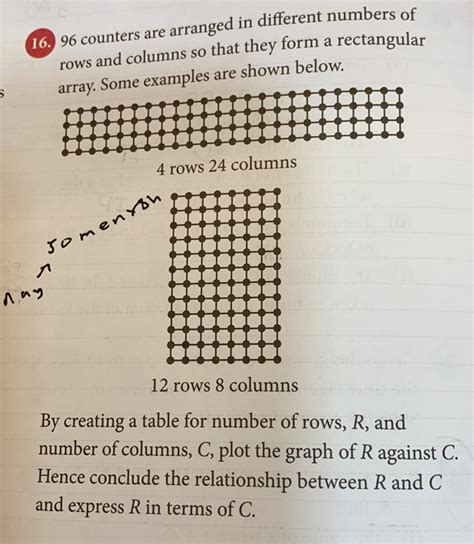 16. 96 counters are arranged in different numbers of
rows and columns so that they form a rectangular
array. Some examples are shown below.
4 rows 24 columns
12 rows 8 columns
By creating a table for number of rows, R, and
number of columns, C, plot the graph of R against C.
Hence conclude the relationship between R and C
and express R in terms of C.